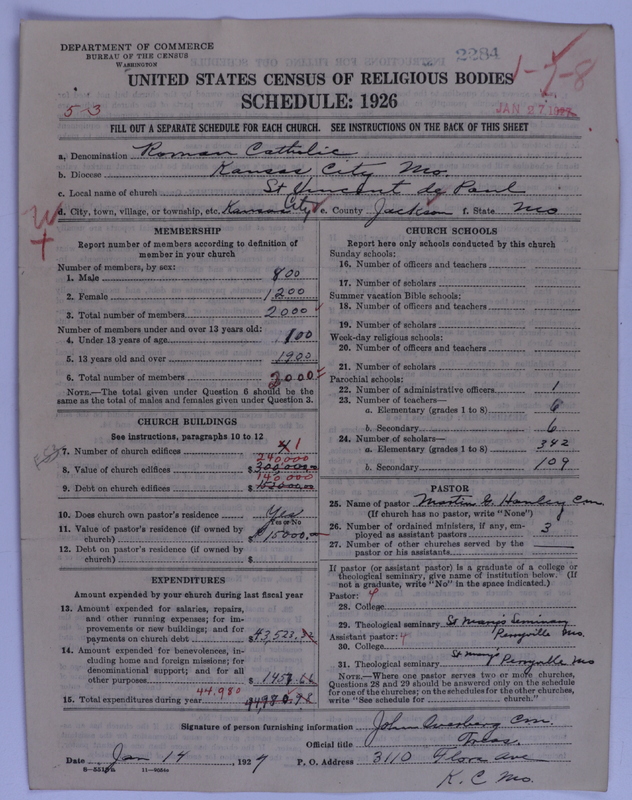 DEPARTMENT OF COMMERCE
BUREAU OF THE CENSUS
WASHINGTON
2284
1-7-8
UNITED STATES CENSUS OF RELIGIOUS BODIES
SCHEDULE: 1926
5-3
JAN 27 1927
FILL OUT A SEPARATE SCHEDULE FOR EACH CHURCH. SEE INSTRUCTIONS ON THE BACK OF THIS SHEET
a. Denomination Roman Catholic
b. Diocese Kansas City Mo.
c. Local name of church St Vincent de Paul
d. City, town, village, or township, etc. Kansas City e. County Jackson f. State Mo
MEMBERSHIP
Report number of members according to definition of
member in your church
Number of members, by sex:
1. Male 800
2. Female 1200
3. Total number of members 2000
Number of members under and over 13 years old:
4. Under 13 years of age 100
5. 13 years old and over 1900
6. Total number of members 2000
NOTE.—The total given under Question 6 should be
the same as the total of males and females given under Question 3.
CHURCH BUILDINGS
See instructions, paragraphs 10 to 12
7. Number of church edifices 1
240,000
8. Value of church edifices $300,000.00
140,000
9. Debt on church edifices $
10. Does church own pastor's residence Yes
Yes or No
11. Value of pastor's residence (if owned by
church) $15000.—
12. Debt on pastor's residence (if owned by
church) $
EXPENDITURES
Amount expended by your church during last fiscal year
13. Amount expended for salaries, repairs,
and other running expenses; for im-
provements or new buildings; and for
payments on church debt $43,523.32
14. Amount expended for benevolences, in-
cluding home and foreign missions; for
denominational support; and for all
other purposes $1457.66
15. Total expenditures during year 44,980 $44980.98
CHURCH SCHOOLS
Report here only schools conducted by this church
Sunday schools:
16. Number of officers and teachers
17. Number of scholars
Summer vacation Bible schools:
18. Number of officers and teachers
19. Number of scholars
Week-day religious schools:
20. Number of officers and teachers
21. Number of scholars
Parochial schools:
22. Number of administrative officers 1
23. Number of teachers—
a. Elementary (grades 1 to 8) 6
b. Secondary 6
24. Number of scholars—
a. Elementary (grades 1 to 8) 342
b. Secondary 109
PASTOR
25. Name of pastor Martin G. Hanley C.M.
(If church has no pastor, write "None")
26. Number of ordained ministers, if any, em-
ployed as assistant pastors 3
27. Number of other churches served by the
pastor or his assistants
If pastor (or assistant pastor) is a graduate of a college or
theological seminary, give name of institution below. (If
not a graduate, write "No" in the space indicated.)
Pastor: 4
28. College
29. Theological seminary St Mary's Seminary Perryville Mo.
Assistant pastor: 4
30. College
31. Theological seminary St Mary's Perryville Mo
NOTE.—Where one pastor serves two or more churches,
Questions 28 and 29 should be answered only on the schedule
for one of the churches; on the schedules for the other churches,
write "See schedule for church."
Signature of person furnishing information John C.M.
Official title Treas.
Date Jan 14 1927 P. O. Address 3110 Flora Ave
K. C. Mo.
11—9084a